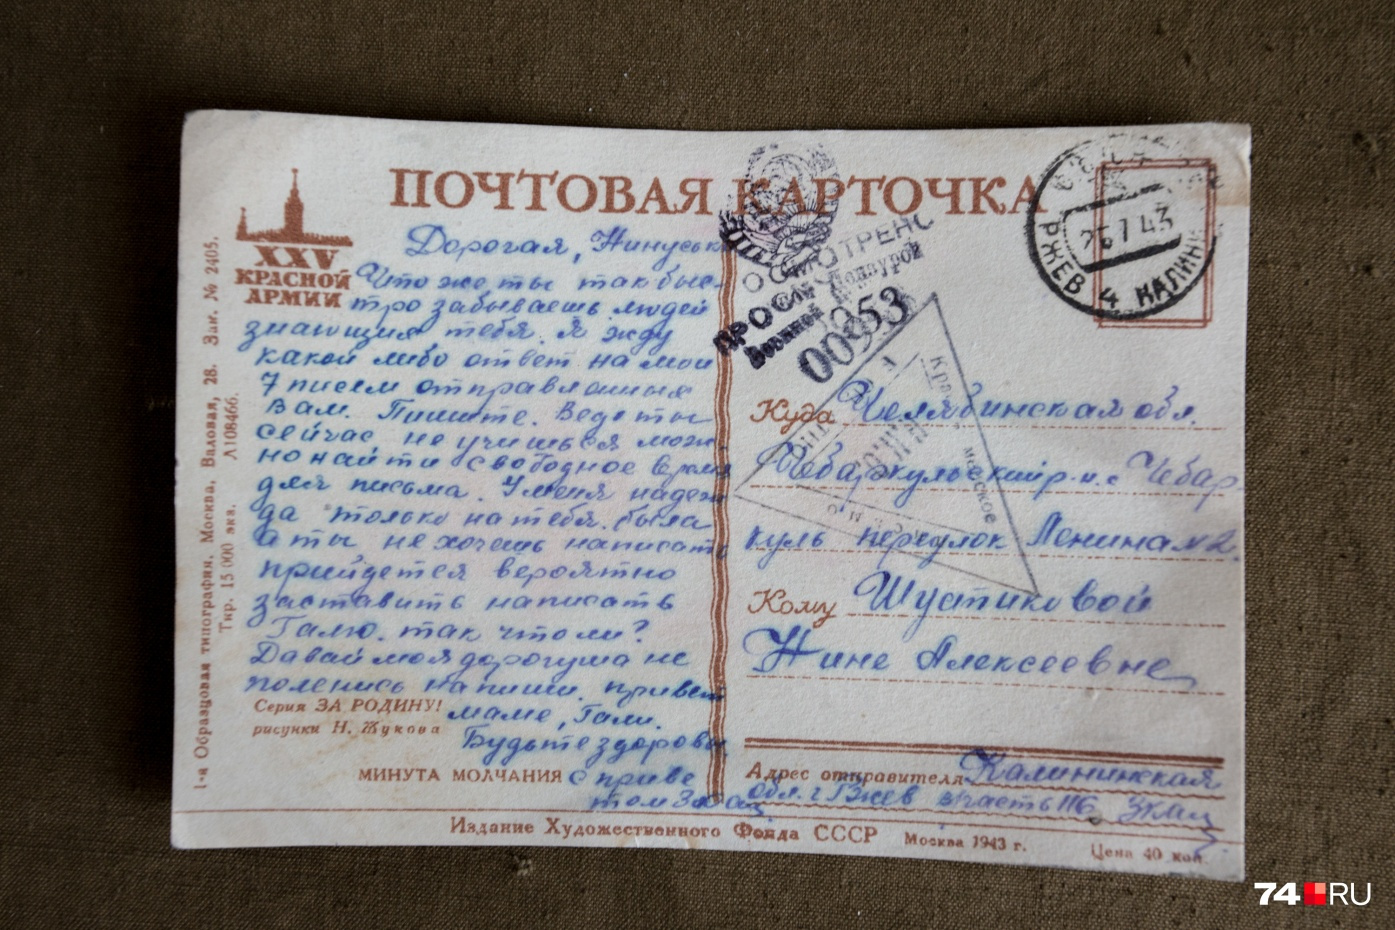 ПОЧТОВАЯ КАРТОЧКА
XXV
КРАСНОЙ
АРМИИ
Дорогая, Нинуськ
Что же ты так быс-
тро забываешь людей
знающих тебя. Я жду
какой либо ответ на мои
7 писем отправленных
Вам. Пишите. Ведь ты
сейчас не учишься мож-
но найти свободное время
для письма. У меня надеж-
да только на тебя. была
а ты не хочешь написать
прийдется вероятно
заставить написать
Галю. так что ли?
Давай моя дорогуша не
поленись напиши. привет
маме, Гали.
Будьте здоровы
с приве
том
Серия ЗА РОДИНУ!
рисунки Н. Жукова
МИНУТА МОЛЧАНИЯ
1-я Образцовая типография, Москва, Валовая, 28. Зак. № 2405.
Тир. 15 000 экз. Л108466.
ПРОСМОТРЕНО
Военной Цензурой
00953
РЖЕВ 4 КАЛИНИН
25 7 43
Красно
Куда Челябинская обл.
Чебаркульский р-н. с Чебар
куль переулок Ленина № 2.
Кому Шустиковой
Нине Алексеевне
Адрес отправителя Калининская
обл. г Ржев часть 116
Издание Художественного Фонда СССР Москва 1943 г. Цена 40 коп.
74 RU